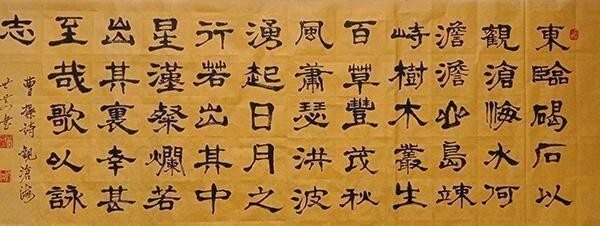 東臨碣石以
觀滄海水何
澹澹山島竦
峙樹木叢生
百草豐茂秋
風蕭瑟洪波
湧起日月之
行若出其中
星漢燦爛若
出其裏幸甚
至哉歌以詠
志
曹操詩觀滄海